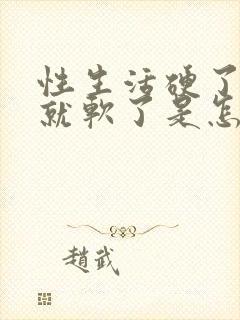 性生活硬了
就軟了是怎
趙武